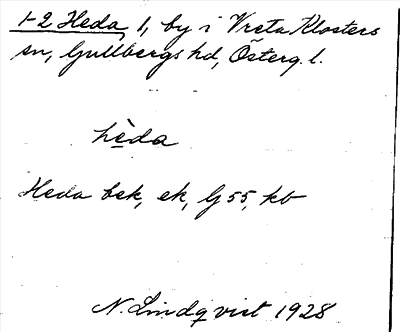 1-2 Heda, 1, by i Vreta Klosters
sn, Gullbergs hd, Österg. l.
hèda
Heda bsk, ek, G 55, kb
N. Lindqvist 1928